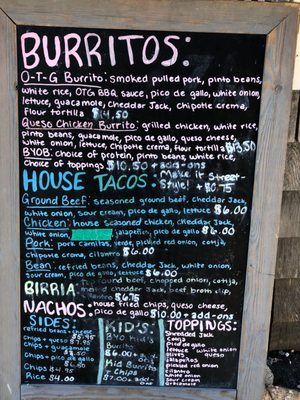 BURRITOS:
O-T-G Burrito: smoked pulled pork, pinto beans,
white rice, OTG BBQ sauce, pico de gallo, white onion,
lettuce, guacamole, cheddar Jack, chipotle crema,
flour tortilla $14.50
Queso Chicken Burrito: grilled chicken, white rice,
pinto beans, guacamole, pico de gallo, queso cheese,
white onion, lettuce, chipotle crema, flour tortilla $13.50
BYOB: choice of protein, pinto beans, white rice,
Choice of toppings $10.50 + add-ons
HOUSE TACOS: Make it Street
Style! + $0.75
Ground Beef: seasoned ground beef, cheddar Jack,
white onion, sour cream, pico de gallo, lettuce $6.00
Chicken: house seasoned chicken, cheddar Jack,
white onion, jalapeño, pico de gallo $6.00
Pork: pork carnitas, verde, pickled red onion, cotija,
Chipotle crema, cilantro $6.00
Bean: refried beans, cheddar Jack, white onion,
sour cream, pico de gallo, lettuce $6.00
BIRRIA: beef, chopped onion, cotija,
cheddar Jack, beef broth dip,
$6.75
NACHOS: house fried chips, queso cheese,
pico de gallo $10.00 + add-ons
SIDES:
refried bean + cheese
$5.95
chips + queso $7.95
chips + guacamole
$6.50
chips + pico de gallo
$6.50
Chips $4.95
Rice $4.00
KID'S:
BYO Kid's
Burrito
$6.00 +
only
Kid Burrito
+ Chips
$7.00 + add-
ons
TOPPINGS:
Shredded Jack
Cotija
pico de gallo
lettuce white onion
olives queso
jalapeños
pickled red onion
cilantro
white onion
sour cream
Guacamole